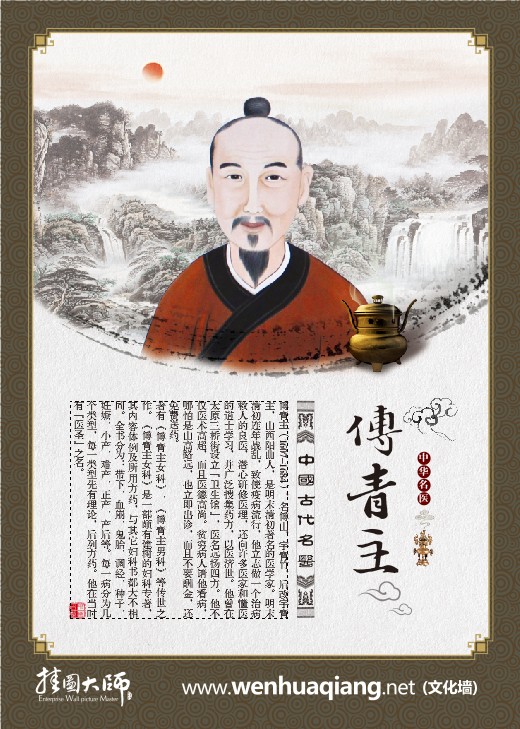 傅青主
中华名医
中國古代名醫
傅青主(1607-1684)，名傅山，字青竹，后改字青
主，山西阳曲人，是明末清初著名的医学家。明末
清初连年战乱，致使疫病流行，他立志做一个治病
救人的良医，潜心研修医理，还向许多医家和懂医
的道士学习，并广泛搜集药方，以医济世。他曾在
太原三桥街设立「卫生馆」，医名远扬四方。他不
仅医术高超，而且医德高尚。贫穷病人请他看病，
哪怕是山高路远，也立即出诊，而且不要酬金，还
免费送药。
著有《傅青主女科》、《傅青主男科》等传世之
作。《傅青主女科》是一部颇有建树的妇科专著，
其内容体例及所用方药，与其它妇科书都大不相
同。全书分为：带下，血崩，鬼胎，调经，种子，
妊娠，小产，难产，正产，产后等。每一病分为几
个类型，每一类型先有理论，后列方药。他在当时
有「医圣」之名。
挂圖大师
Enterprise Wall picture Master
www.wenhuaqiang.net（文化墙）